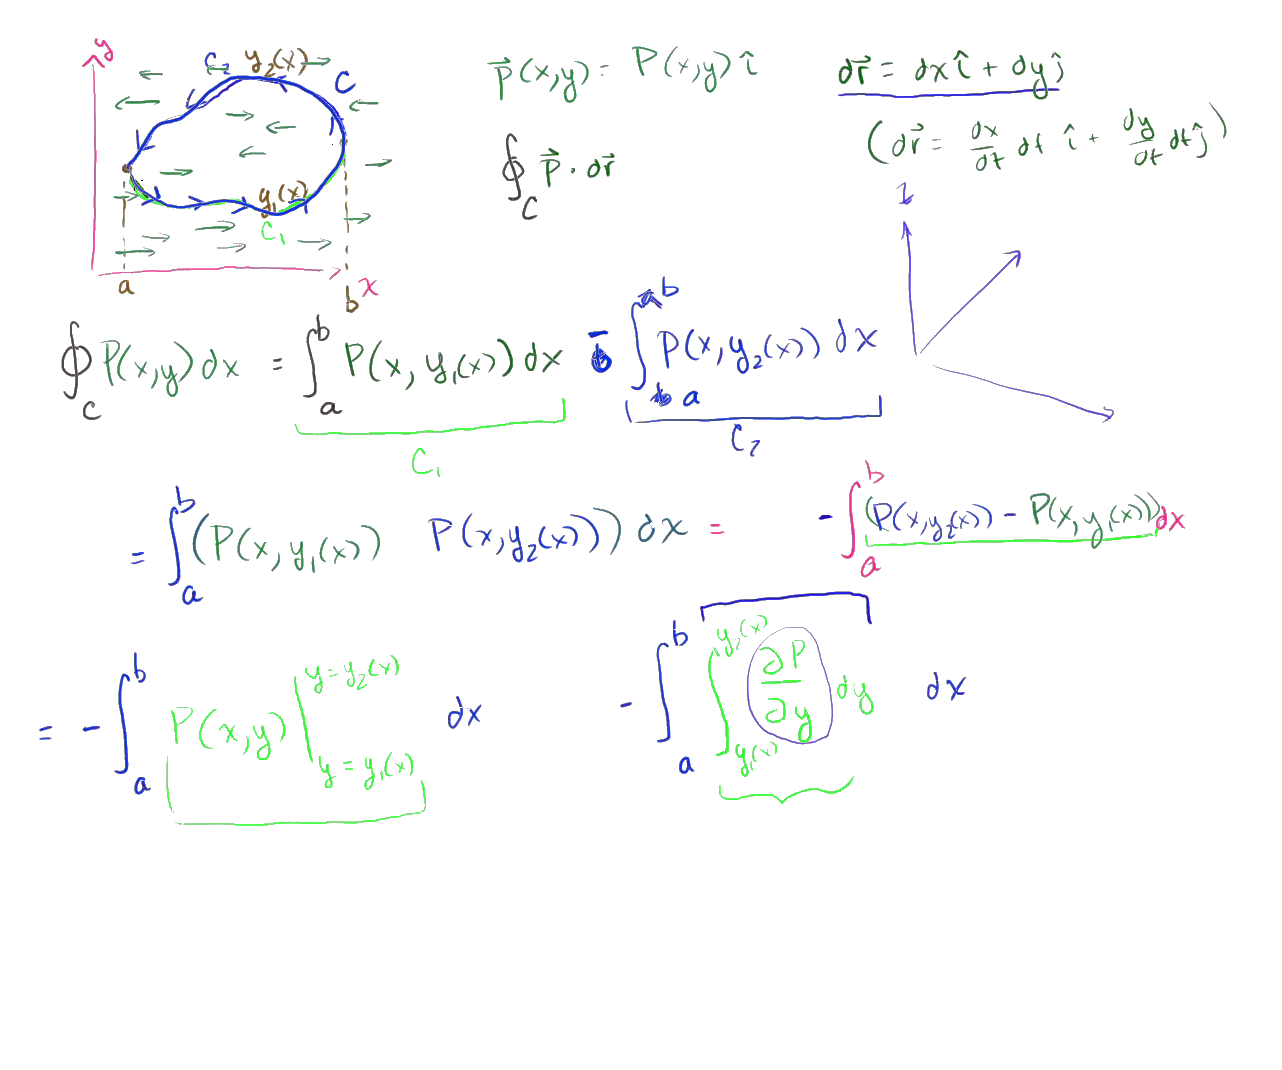 y
C₂ y₂(x)
C
y₁(x)
C₁
a
b x
P⃗(x,y) = P(x,y) î
dr⃗ = dx î + dy ĵ
(dr⃗ = dx/dt dt î + dy/dt dt ĵ)
∮_C P⃗ · dr⃗
z
∮_C P(x,y) dx = ∫_a^b P(x, y₁(x)) dx - ∫_a^b P(x, y₂(x)) dx
C₁ C₂
= ∫_a^b (P(x, y₁(x)) P(x, y₂(x))) dx = - ∫_a^b (P(x, y₂(x)) - P(x, y₁(x))) dx
= - ∫_a^b P(x,y) |_{y = y₁(x)}^{y = y₂(x)} dx - ∫_a^b ∫_{y₁(x)}^{y₂(x)} ∂P/∂y dy dx